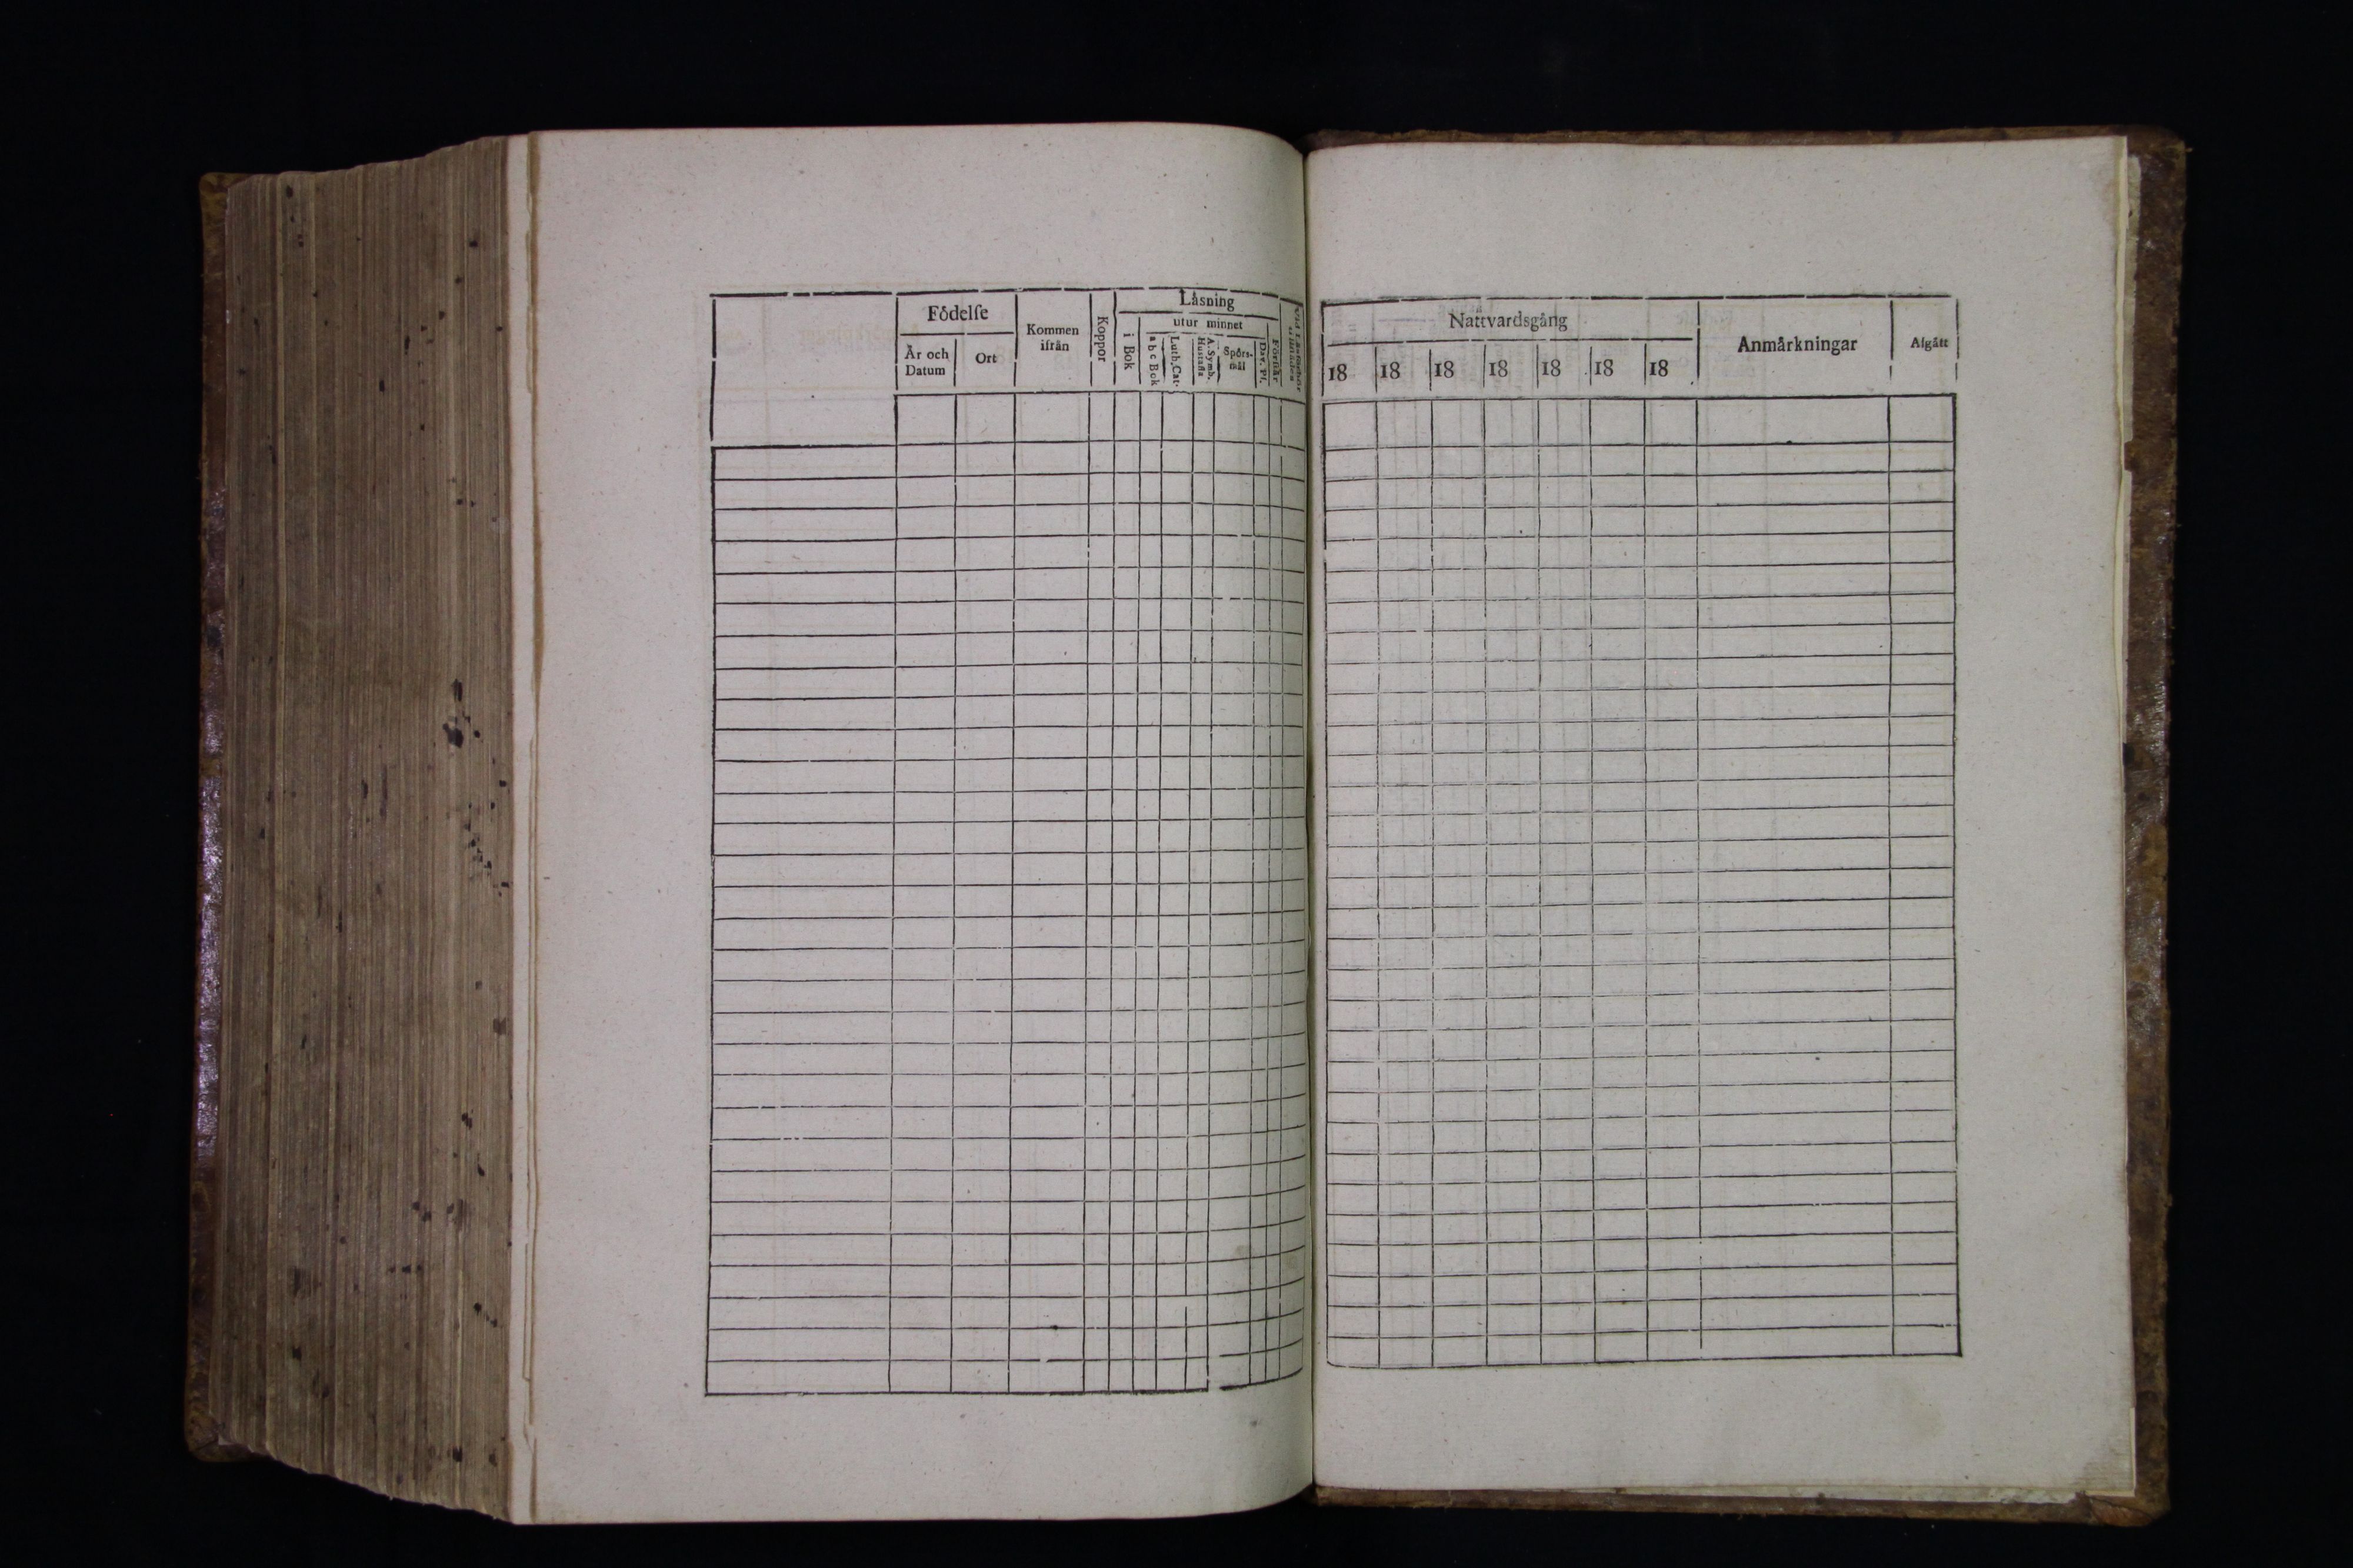 Födelſe
År och
Datum
Ort
Kommen
ifrån
Koppor
Läsning
i Bok
utur minnet
a b c Bok
Luth. Cat.
A. Symb.
Huſtafla
Spörs-
mål
Dav. Pſ.
Förſtår
Nattvardsgång
18 18 18 18 18 18 18
Anmärkningar
Afgått